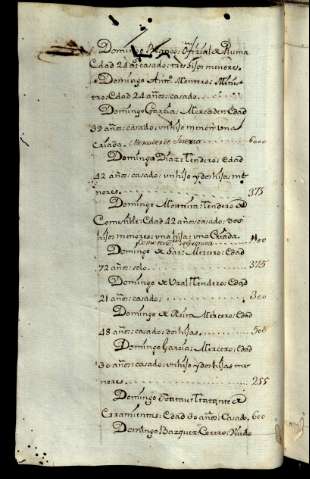 Domingo Ramos; Oficial de Pluma
Edad 28 as casado; tres hijos menores.
Domingo Antt. Montero; Minis-
tro; Edad 24 años, casado.
Domingo Garcia; Mercader; Edad
39 años; casado, un hijo menor; una
Criada. 6000
Domingo Diaz; Tendero; Edad
42 años, casado, un hijo y dos hijas me
nores. 375
Domingo Tendero de
Comestible; Edad 42 años; casado; dos
hijos menores; una hija; una Criada
1100
Domingo de Mercero; Edad
72 años; solo. 375
Domingo de Tendero; Edad
21 años; casado. 300
Domingo de Mercero; Edad
48 años; casado; dos hijas. 500
Domingo Garcia; Mercero; Edad
30 años; casado; un hijo y dos hijas me
nores. 255
Domingo Tratante de
Erramientas; Edad 30 años; Casado. 600
Domingo Bazquez; Cerero; Viudo